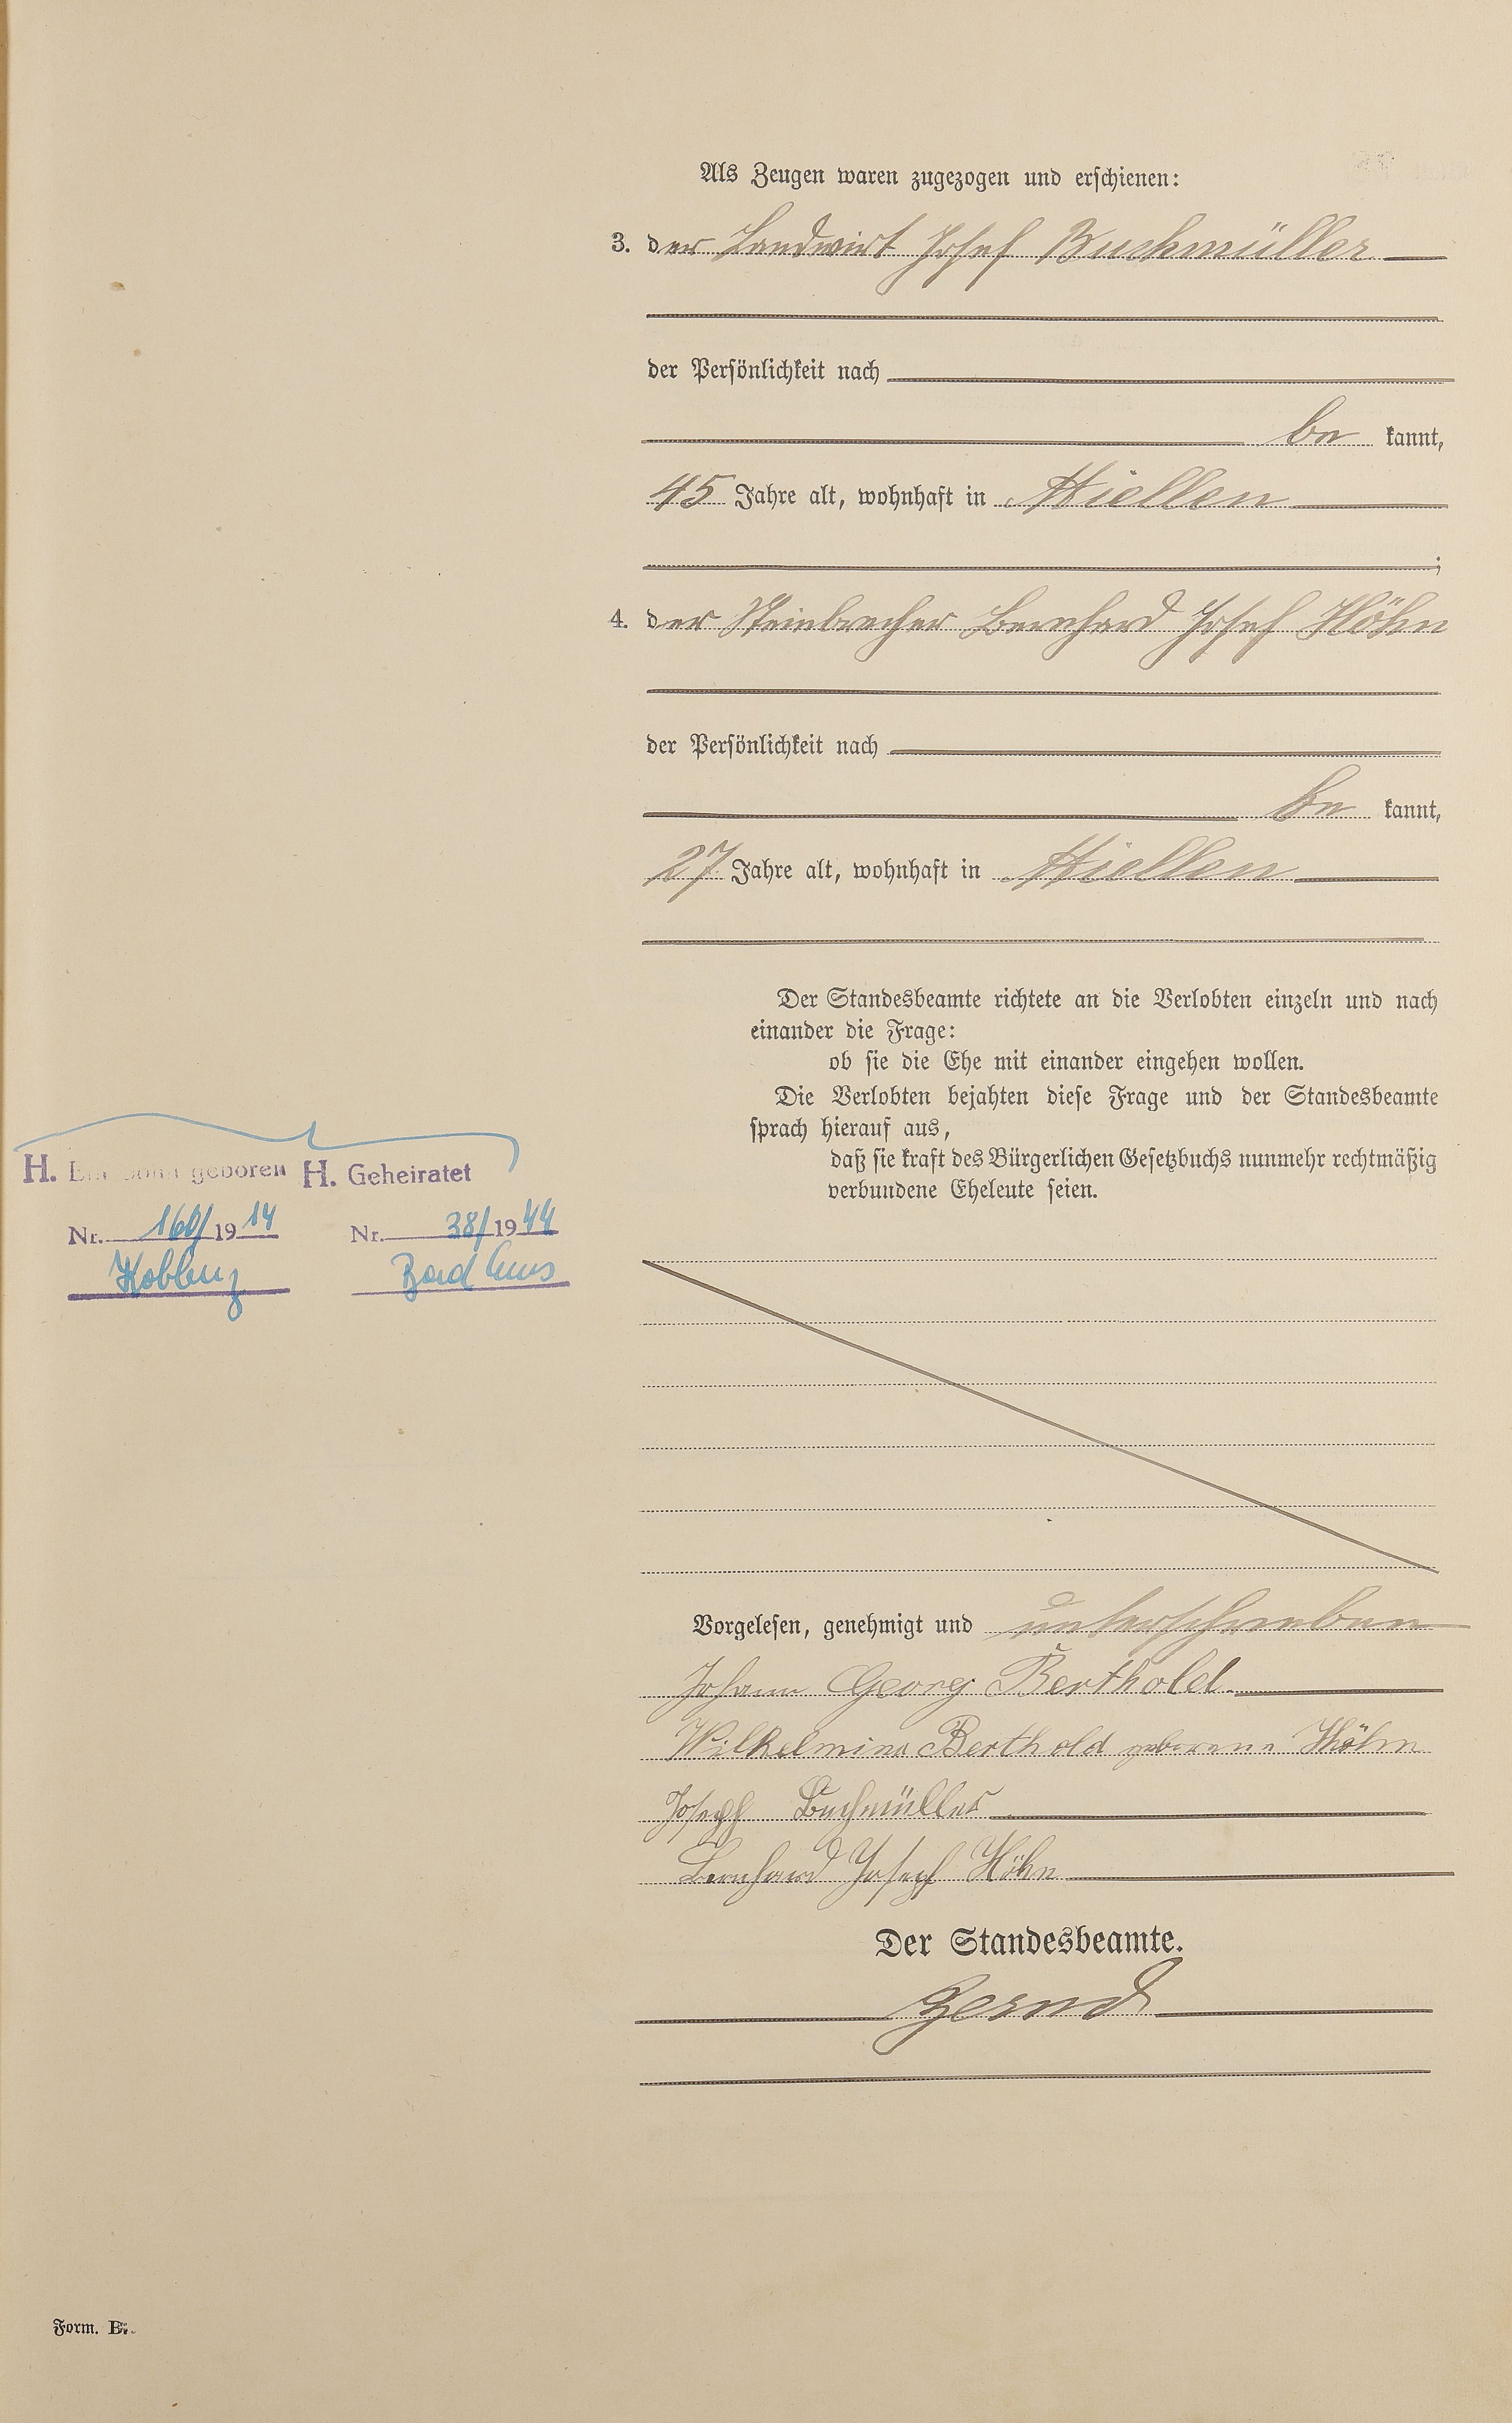 Als Zeugen waren zugezogen und erschienen:
3. der Landwirt Josef Buchmüller
der Persönlichkeit nach
be kannt,
45 Jahre alt, wohnhaft in Miellen
;
4. der Steinbrecher Bernhard Josef Höhn
der Persönlichkeit nach
be kannt,
27 Jahre alt, wohnhaft in Miellen
Der Standesbeamte richtete an die Verlobten einzeln und nach
einander die Frage:
ob sie die Ehe mit einander eingehen wollen.
Die Verlobten bejahten diese Frage und der Standesbeamte
sprach hierauf aus,
daß sie kraft des Bürgerlichen Gesetzbuchs nunmehr rechtmäßig
verbundene Eheleute seien.
H. Ein Sohn geboren
Nr. 160/1914
Koblenz
H. Geheiratet
Nr. 38/1944
Bad Ems
Vorgelesen, genehmigt und unterschrieben
Johann Georg Berthold.
Wilhelmina Berthold geborene Höhn
Joseph Buchmüller
Bernhard Joseph Höhn
Der Standesbeamte.
Form. E.